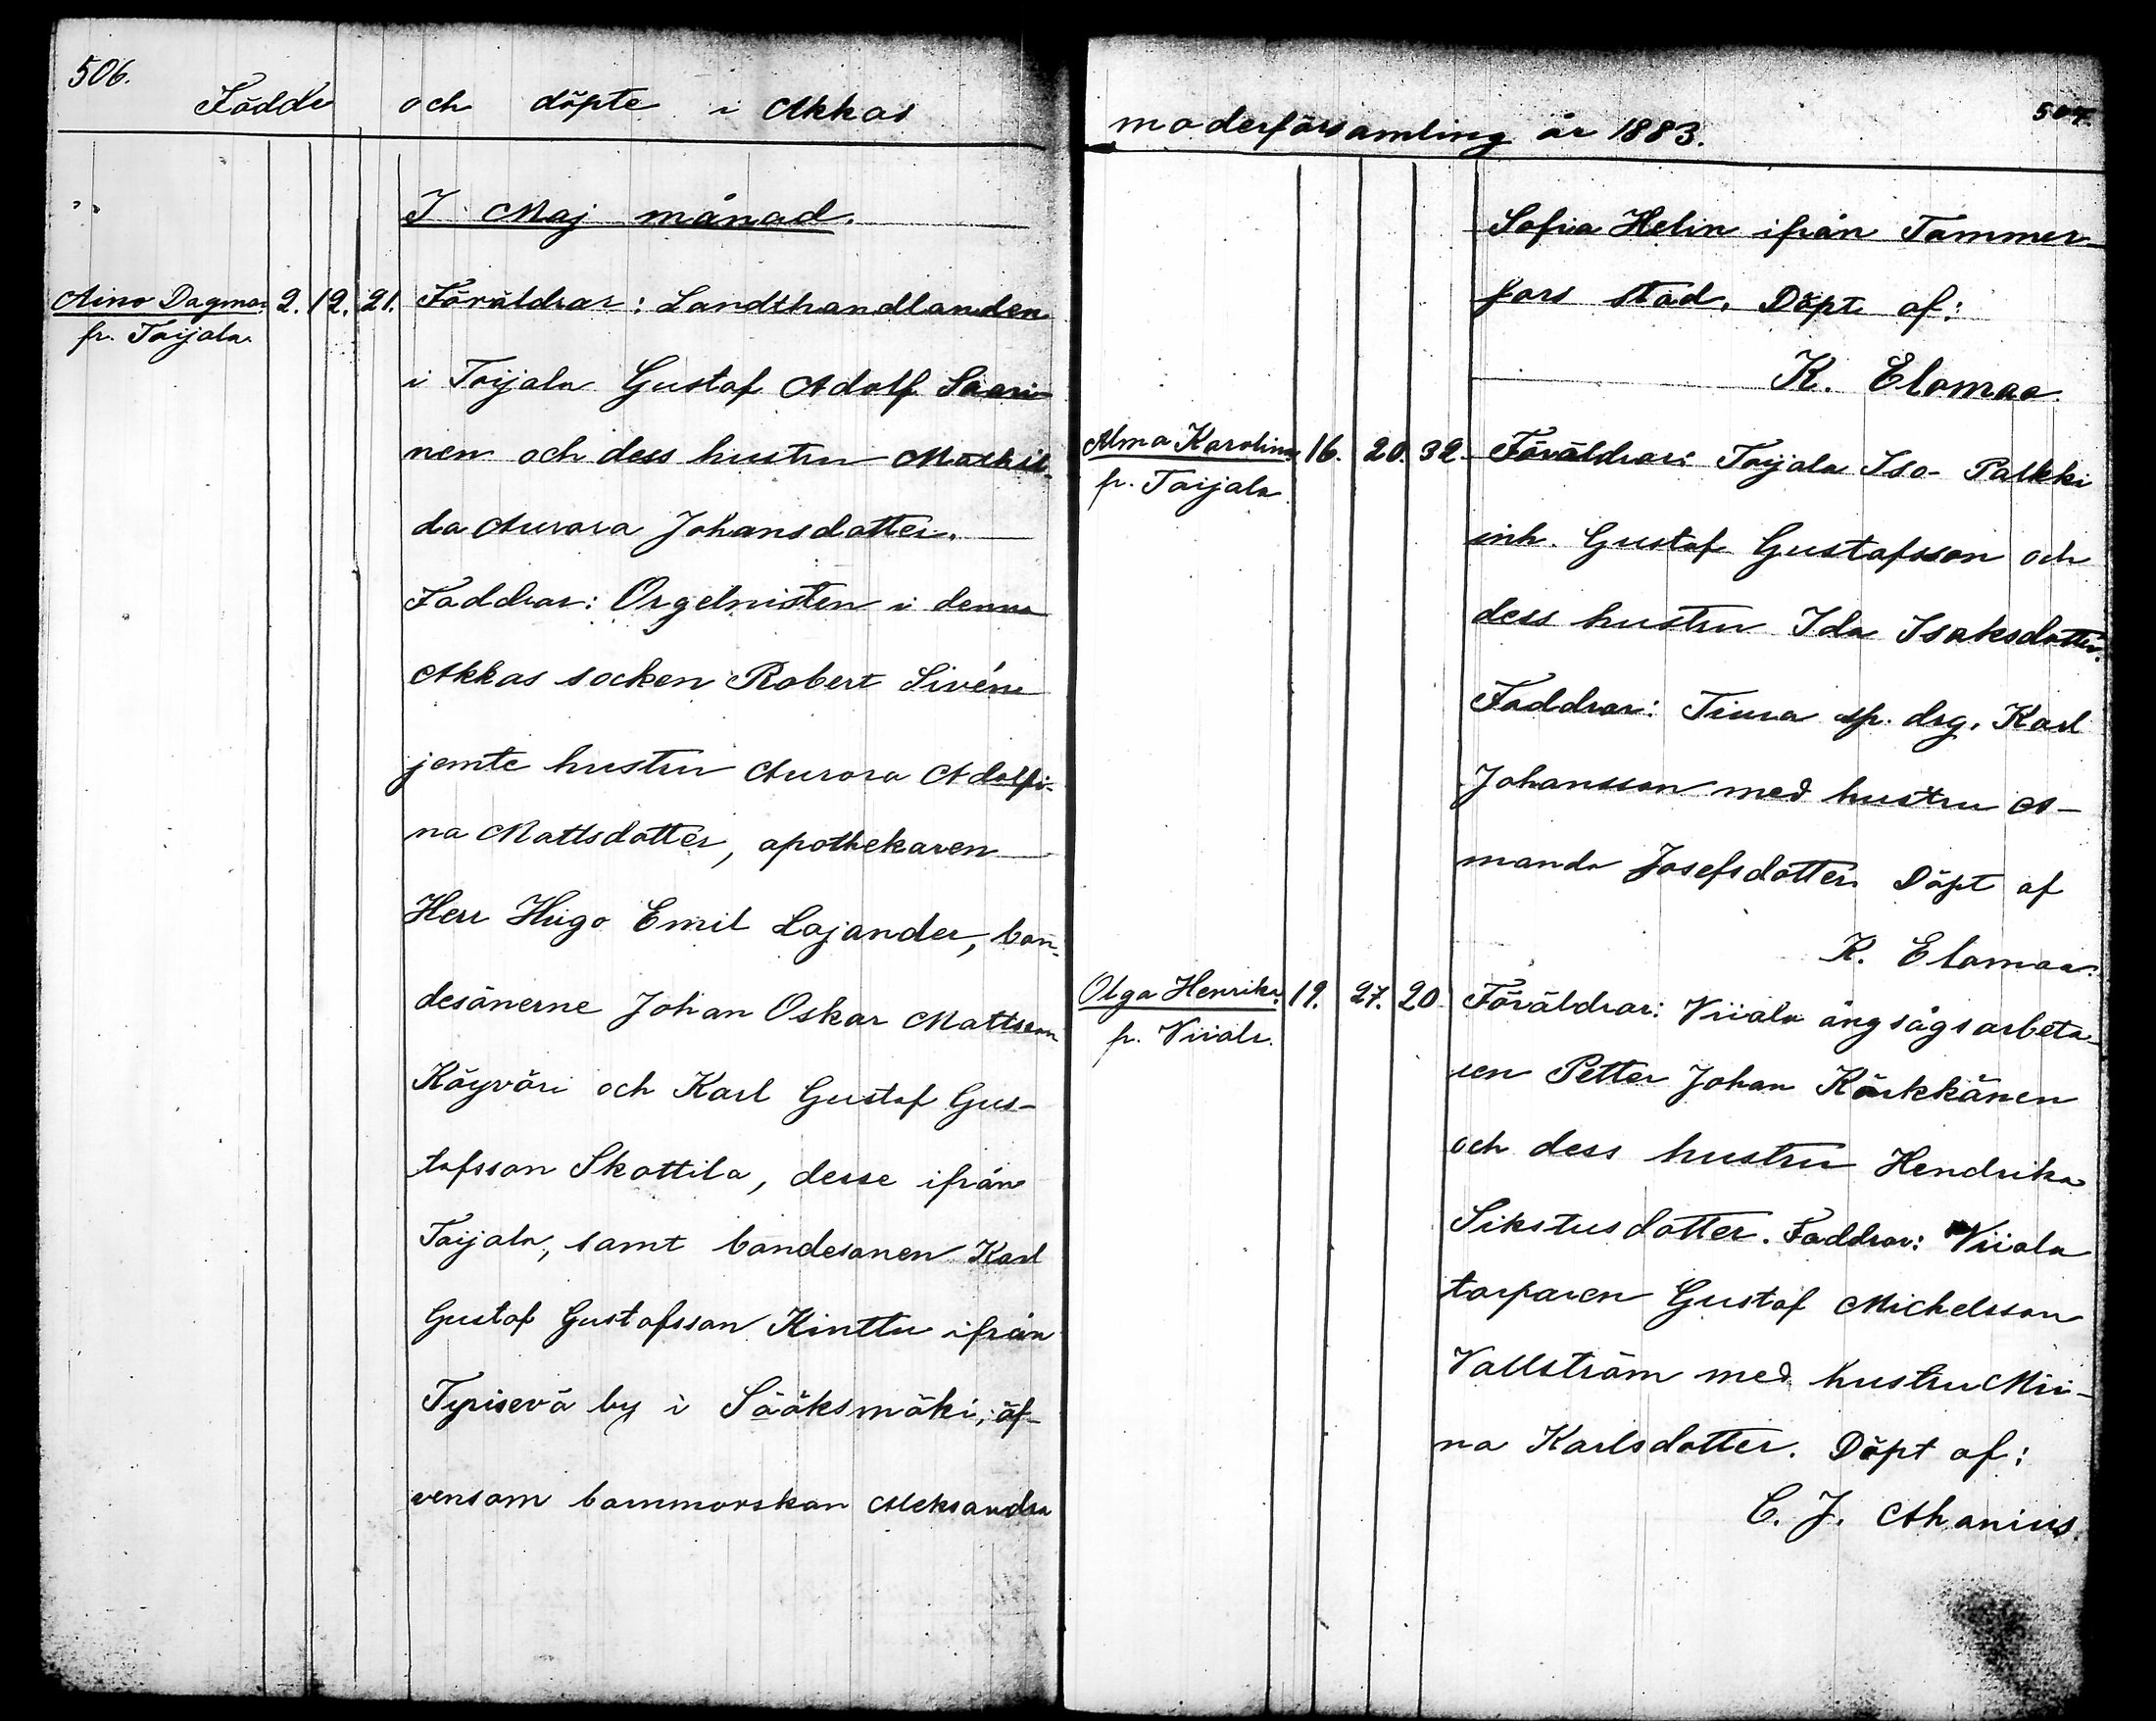 506.
Födde och döpte i Akkas
I Maj månad.
Aino Dagmar 2. 12. 21. Föräldrar: Landthandlanden
fr. Toijala.
i Toijala Gustaf Adolf Saari-
nen och dess hustru Mathil-
da Aurora Johansdotter.
Faddrar: Orgelnisten i denna
Akkas socken Robert Sivén
jemte hustru Aurora Adolfi-
na Mattsdotter, apothekaren
Herr Hugo Emil Lojander, bon-
desönerne Johan Oskar Mattsson
Köyväri och Karl Gustaf Gus-
tafsson Skottila, desse ifrån
Toijala, samt bondesonen Karl
Gustaf Gustafsson Kinttu ifrån
by i Sääksmäki, äf-
vensom barnmorskan Aleksandra
507.
moderförsamling år 1883.
Sofia Helin ifrån Tammer-
fors stad. Döpt af:
K. Elomaa.
Alma Karolina 16. 20. 32. Föräldrar: Toijala Iso-Palkki
fr. Toijala
inh. Gustaf Gustafsson och
dess hustru Ida Isaksdotter.
Faddrar: Tiura sp. drg. Karl
Johansson med hustru A-
manda Josefsdotter. Döpt af
K. Elomaa.
Olga Henrika 19. 27. 20 Föräldrar: Viiala ångsågsarbeta-
fr. Viiala.
ren Petter Johan Kärkkänen
och dess hustru Hendrika
Sikstusdotter. Faddrar: Viiala
torparen Gustaf Michelsson
Vallström med hustru Mii-
na Karlsdotter. Döpt af:
C. J. Ahanius.